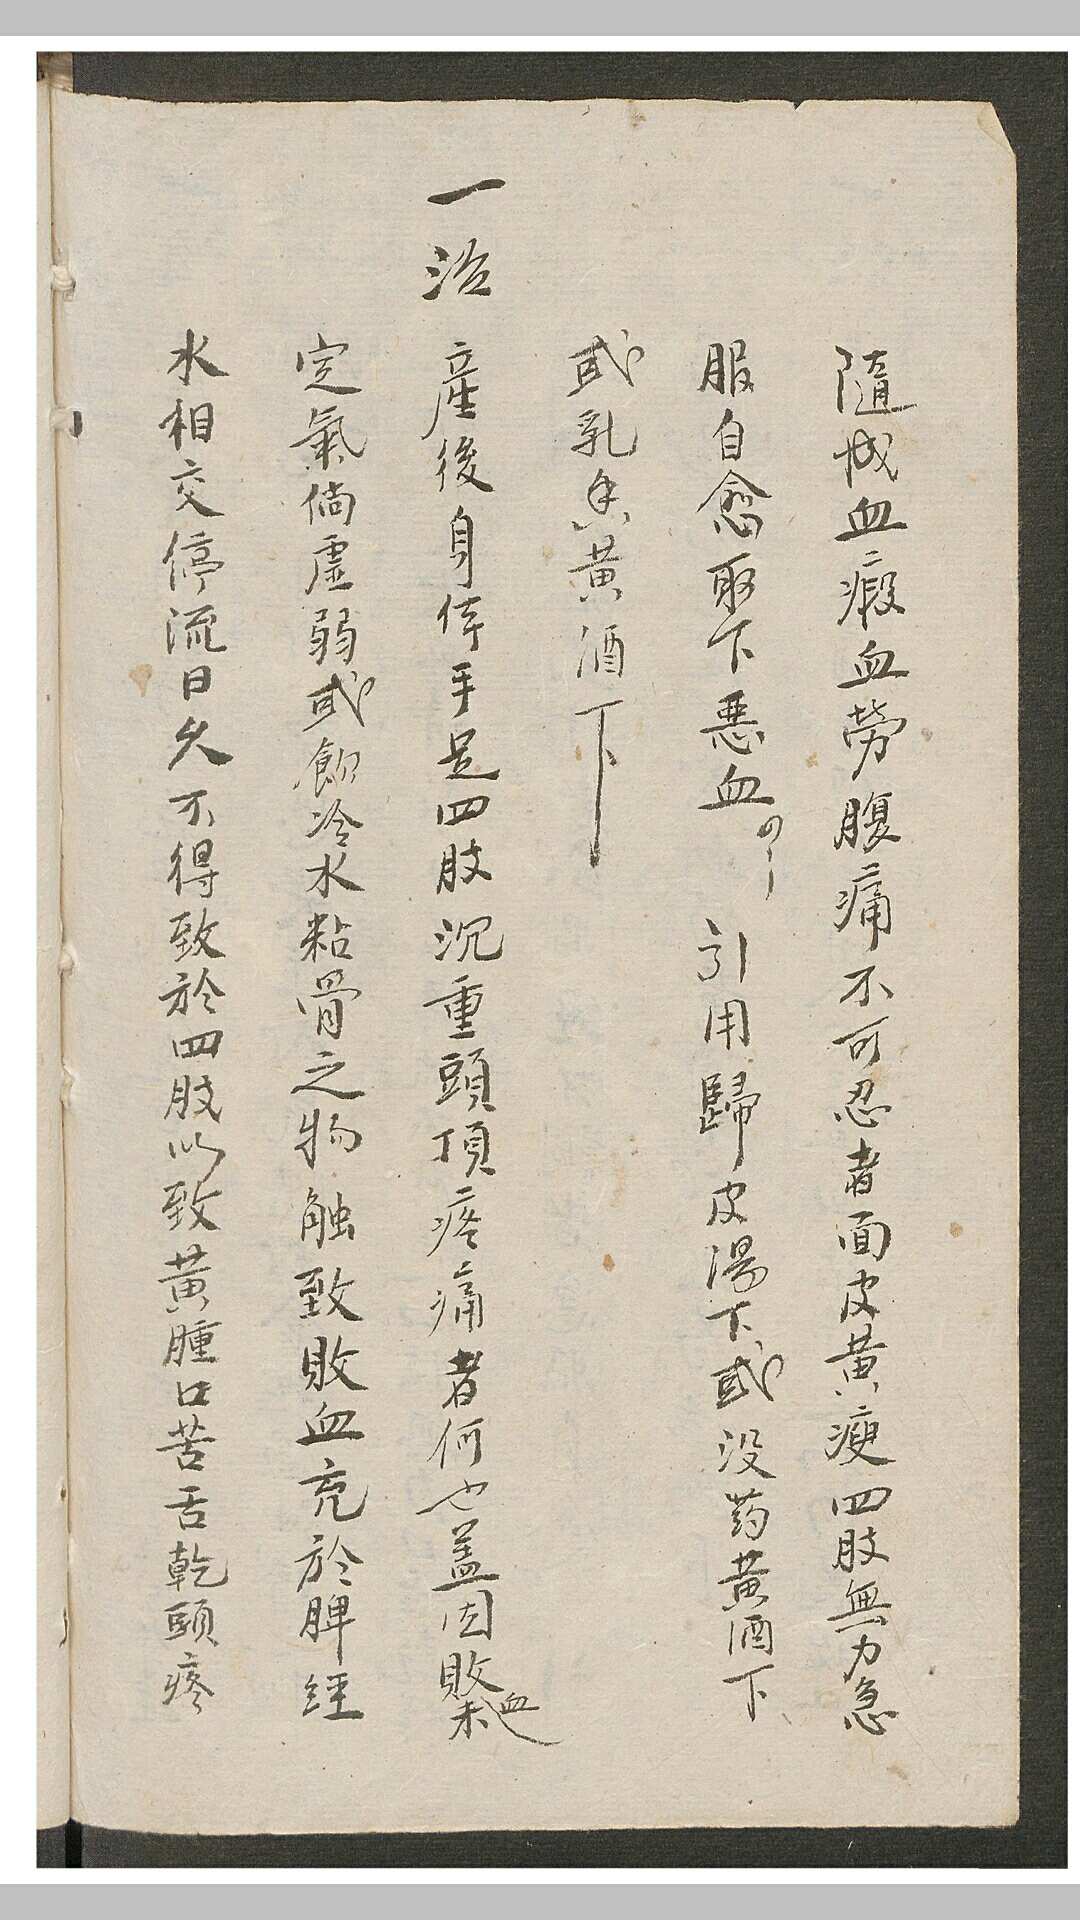 隨成血瘕血勞腹痛不可忍者面皮黄瘦四肢無力急
服自愈取下惡血 引用歸皮湯下或没药黄酒下
或乳香黄酒下
一治產後身体手足四肢沉重頭頂疼痛者何也蓋因敗血未
定氣倘虚弱或飲冷水粘骨之物触致敗血充於脾經
水相交停流日久不得致於四肢以致黄腫口苦舌乾頭疼